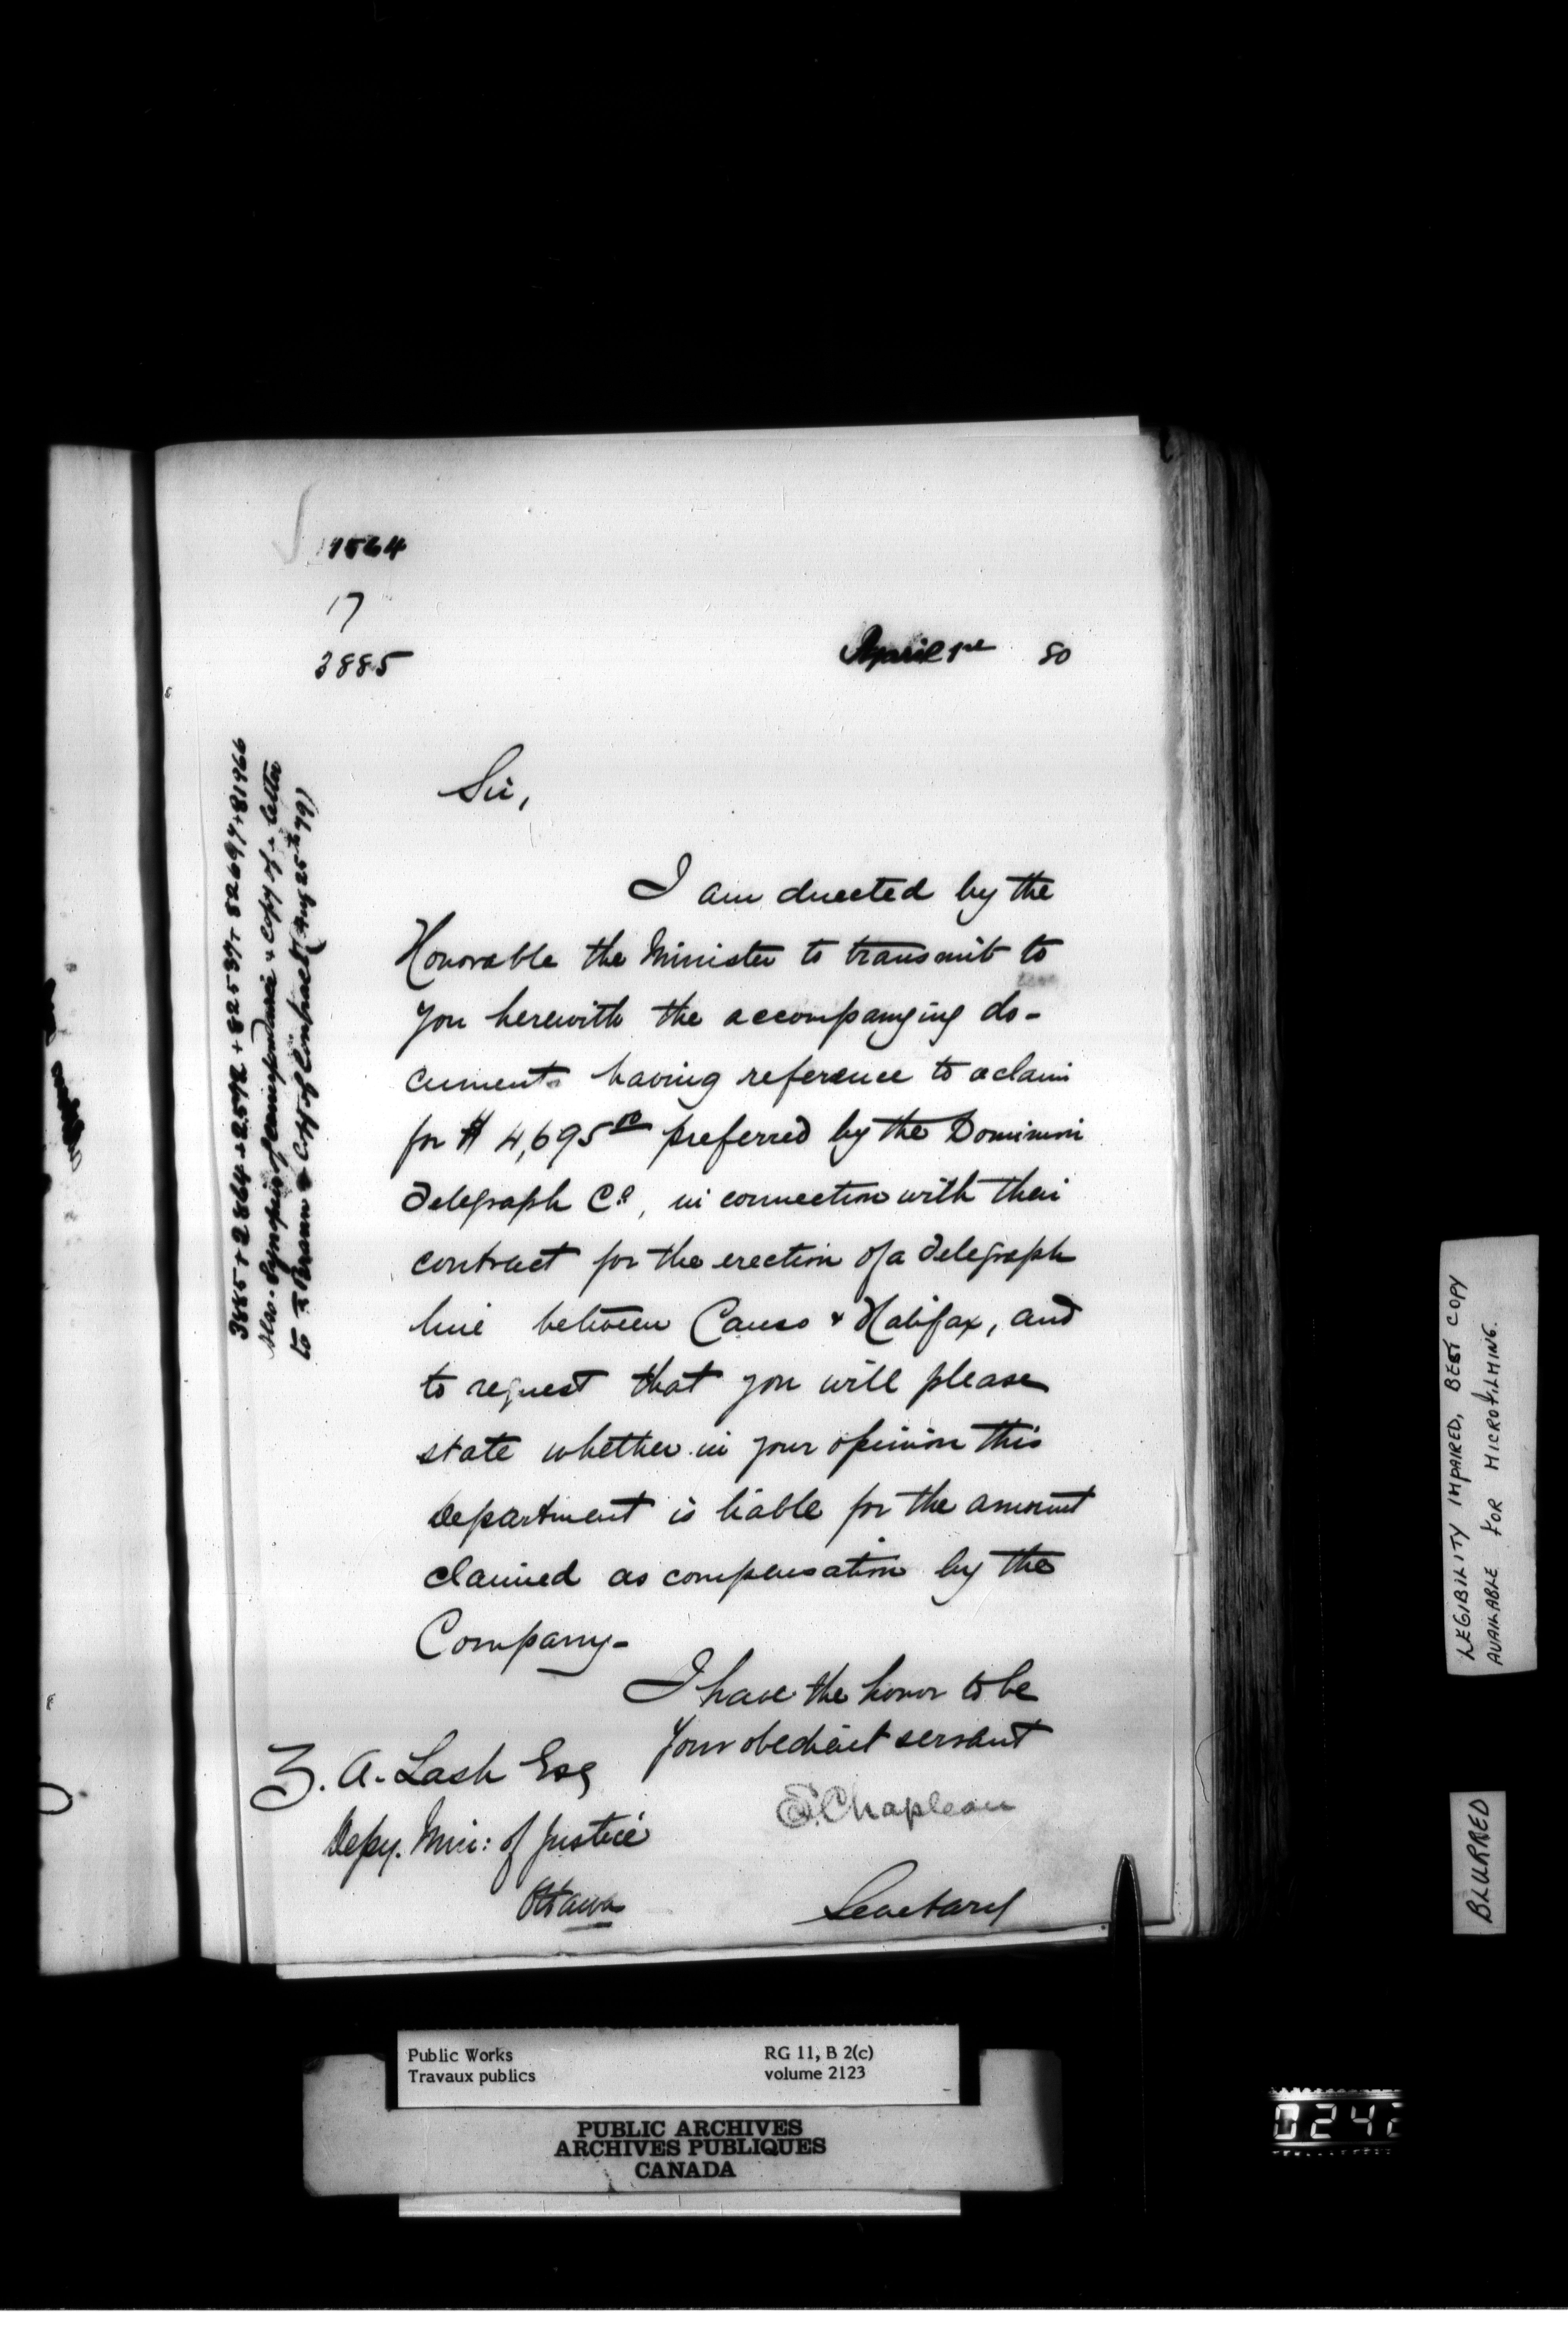 17564
17
3885
April 1st 80
3885 + 2864 + 2572 + 82537 + 82697 + 81966
Also Synopsis of Correspondence & Copy of a letter
to F. Braun & Copy of Contract (Aug 25th 79)
Sir,
I am directed by the
Honorable the Minister to transmit to
you herewith the accompanying do-
cuments having reference to a claim
for $ 4,695 00 preferred by the Dominion
Telegraph Co, in connection with their
contract for the erection of a Telegraph
line between Canso & Halifax, and
to request that you will please
state whether in your opinion this
Department is liable for the amount
claimed as compensation by the
Company-
I have the honor to be
Your obedient servant
Z. A. Lash Esq
Depy. Min: of Justice
Ottawa
S. Chapleau
Secretary
LEGIBILITY IMPAIRED, BEST COPY
AVAILABLE FOR MICROFILMING.
BLURRED
Public Works RG 11, B 2(c)
Travaux publics volume 2123
PUBLIC ARCHIVES
ARCHIVES PUBLIQUES
CANADA
0242